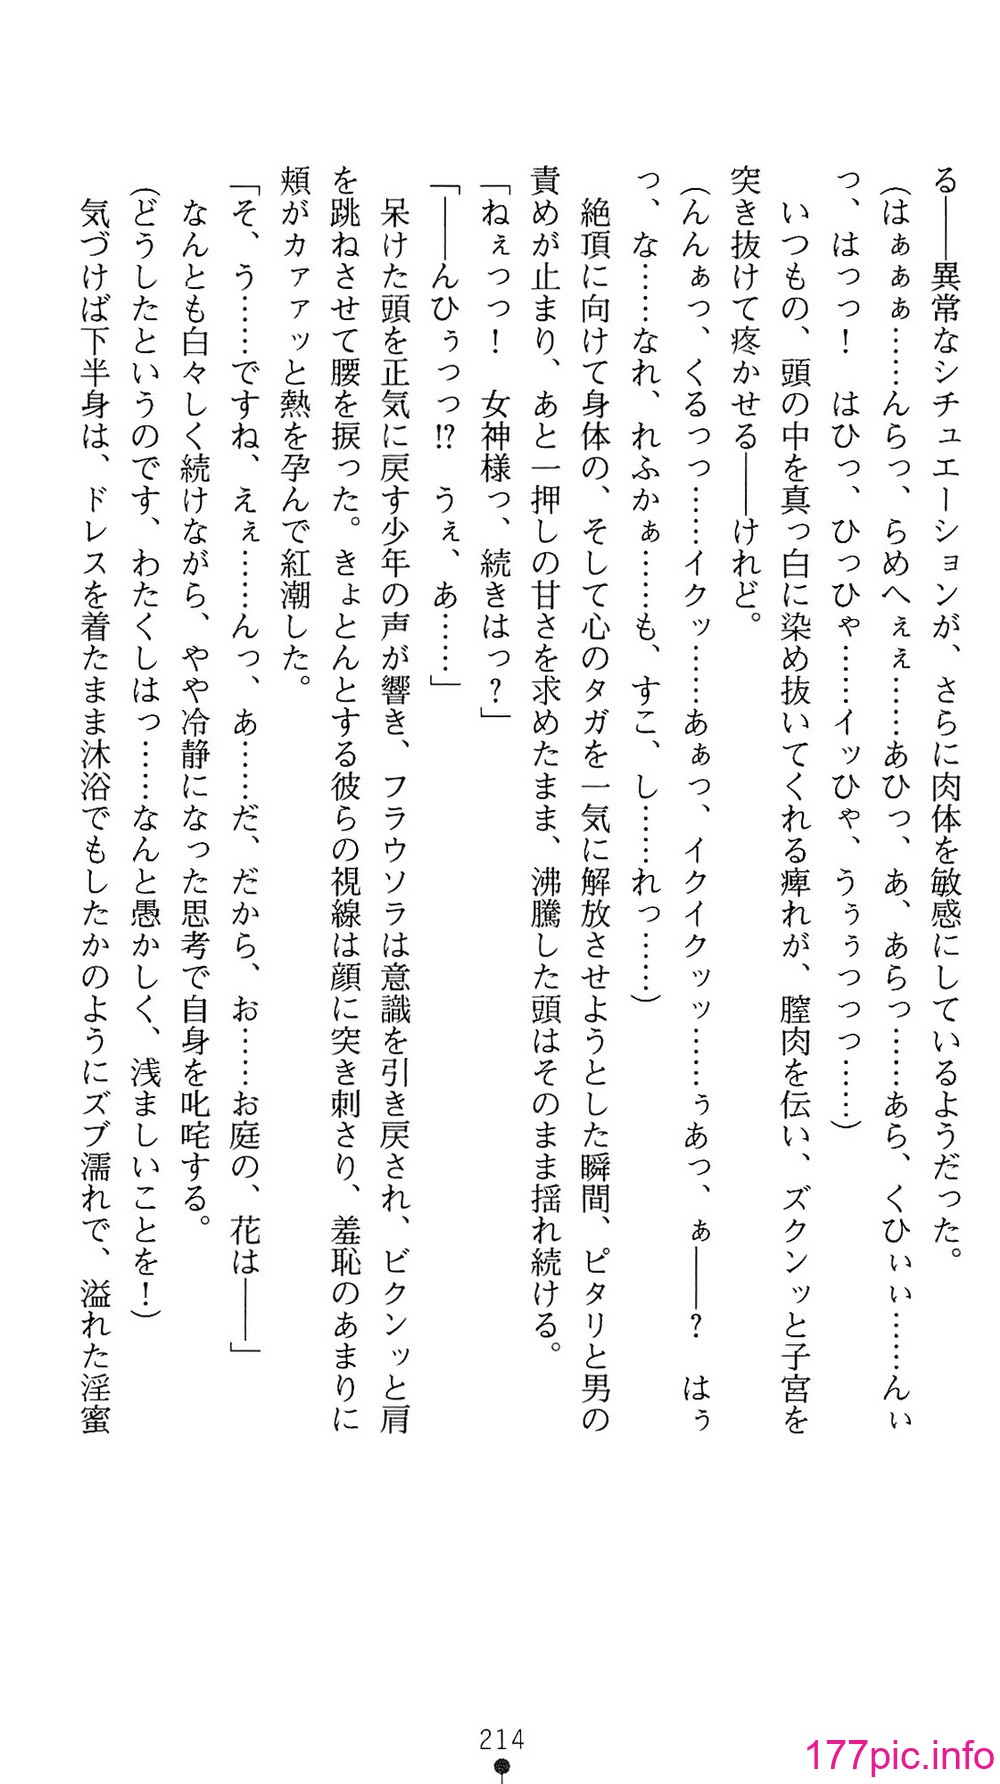 る――異常なシチュエーションが、さらに肉体を敏感にしているようだった。
（はぁぁぁ……んらっ、らめへぇぇ……あひっ、あ、あらっ……あら、くひぃぃ……んぃ
っ、はっっ！　はひっ、ひっひゃ……イッひゃ、うぅぅっっっ……）
いつもの、頭の中を真っ白に染め抜いてくれる痺れが、膣肉を伝い、ズクンッと子宮を
突き抜けて疼かせる――けれど。
（んんぁっ、くるっっ……イクッ……あぁっ、イクイクッッ……ぅあっ、ぁ――？　はぅ
っ、な……なれ、れふかぁ……も、すこ、し……れっ……）
絶頂に向けて身体の、そして心のタガを一気に解放させようとした瞬間、ピタリと男の
責めが止まり、あと一押しの甘さを求めたまま、沸騰した頭はそのまま揺れ続ける。
「ねぇっっ！　女神様っ、続きはっ？」
「――んひぅっっ!?　うぇ、あ……」
呆けた頭を正気に戻す少年の声が響き、フラウソラは意識を引き戻され、ビクンッと肩
を跳ねさせて腰を捩った。きょとんとする彼らの視線は顔に突き刺さり、羞恥のあまりに
頬がカァァッと熱を孕んで紅潮した。
「そ、う……ですね、えぇ……んっ、あ……だ、だから、お……お庭の、花は――」
なんとも白々しく続けながら、やや冷静になった思考で自身を叱咤する。
（どうしたというのです、わたくしはっ……なんと愚かしく、浅ましいことを！）
気づけば下半身は、ドレスを着たまま沐浴でもしたかのようにズブ濡れで、溢れた淫蜜
214
177pic.info